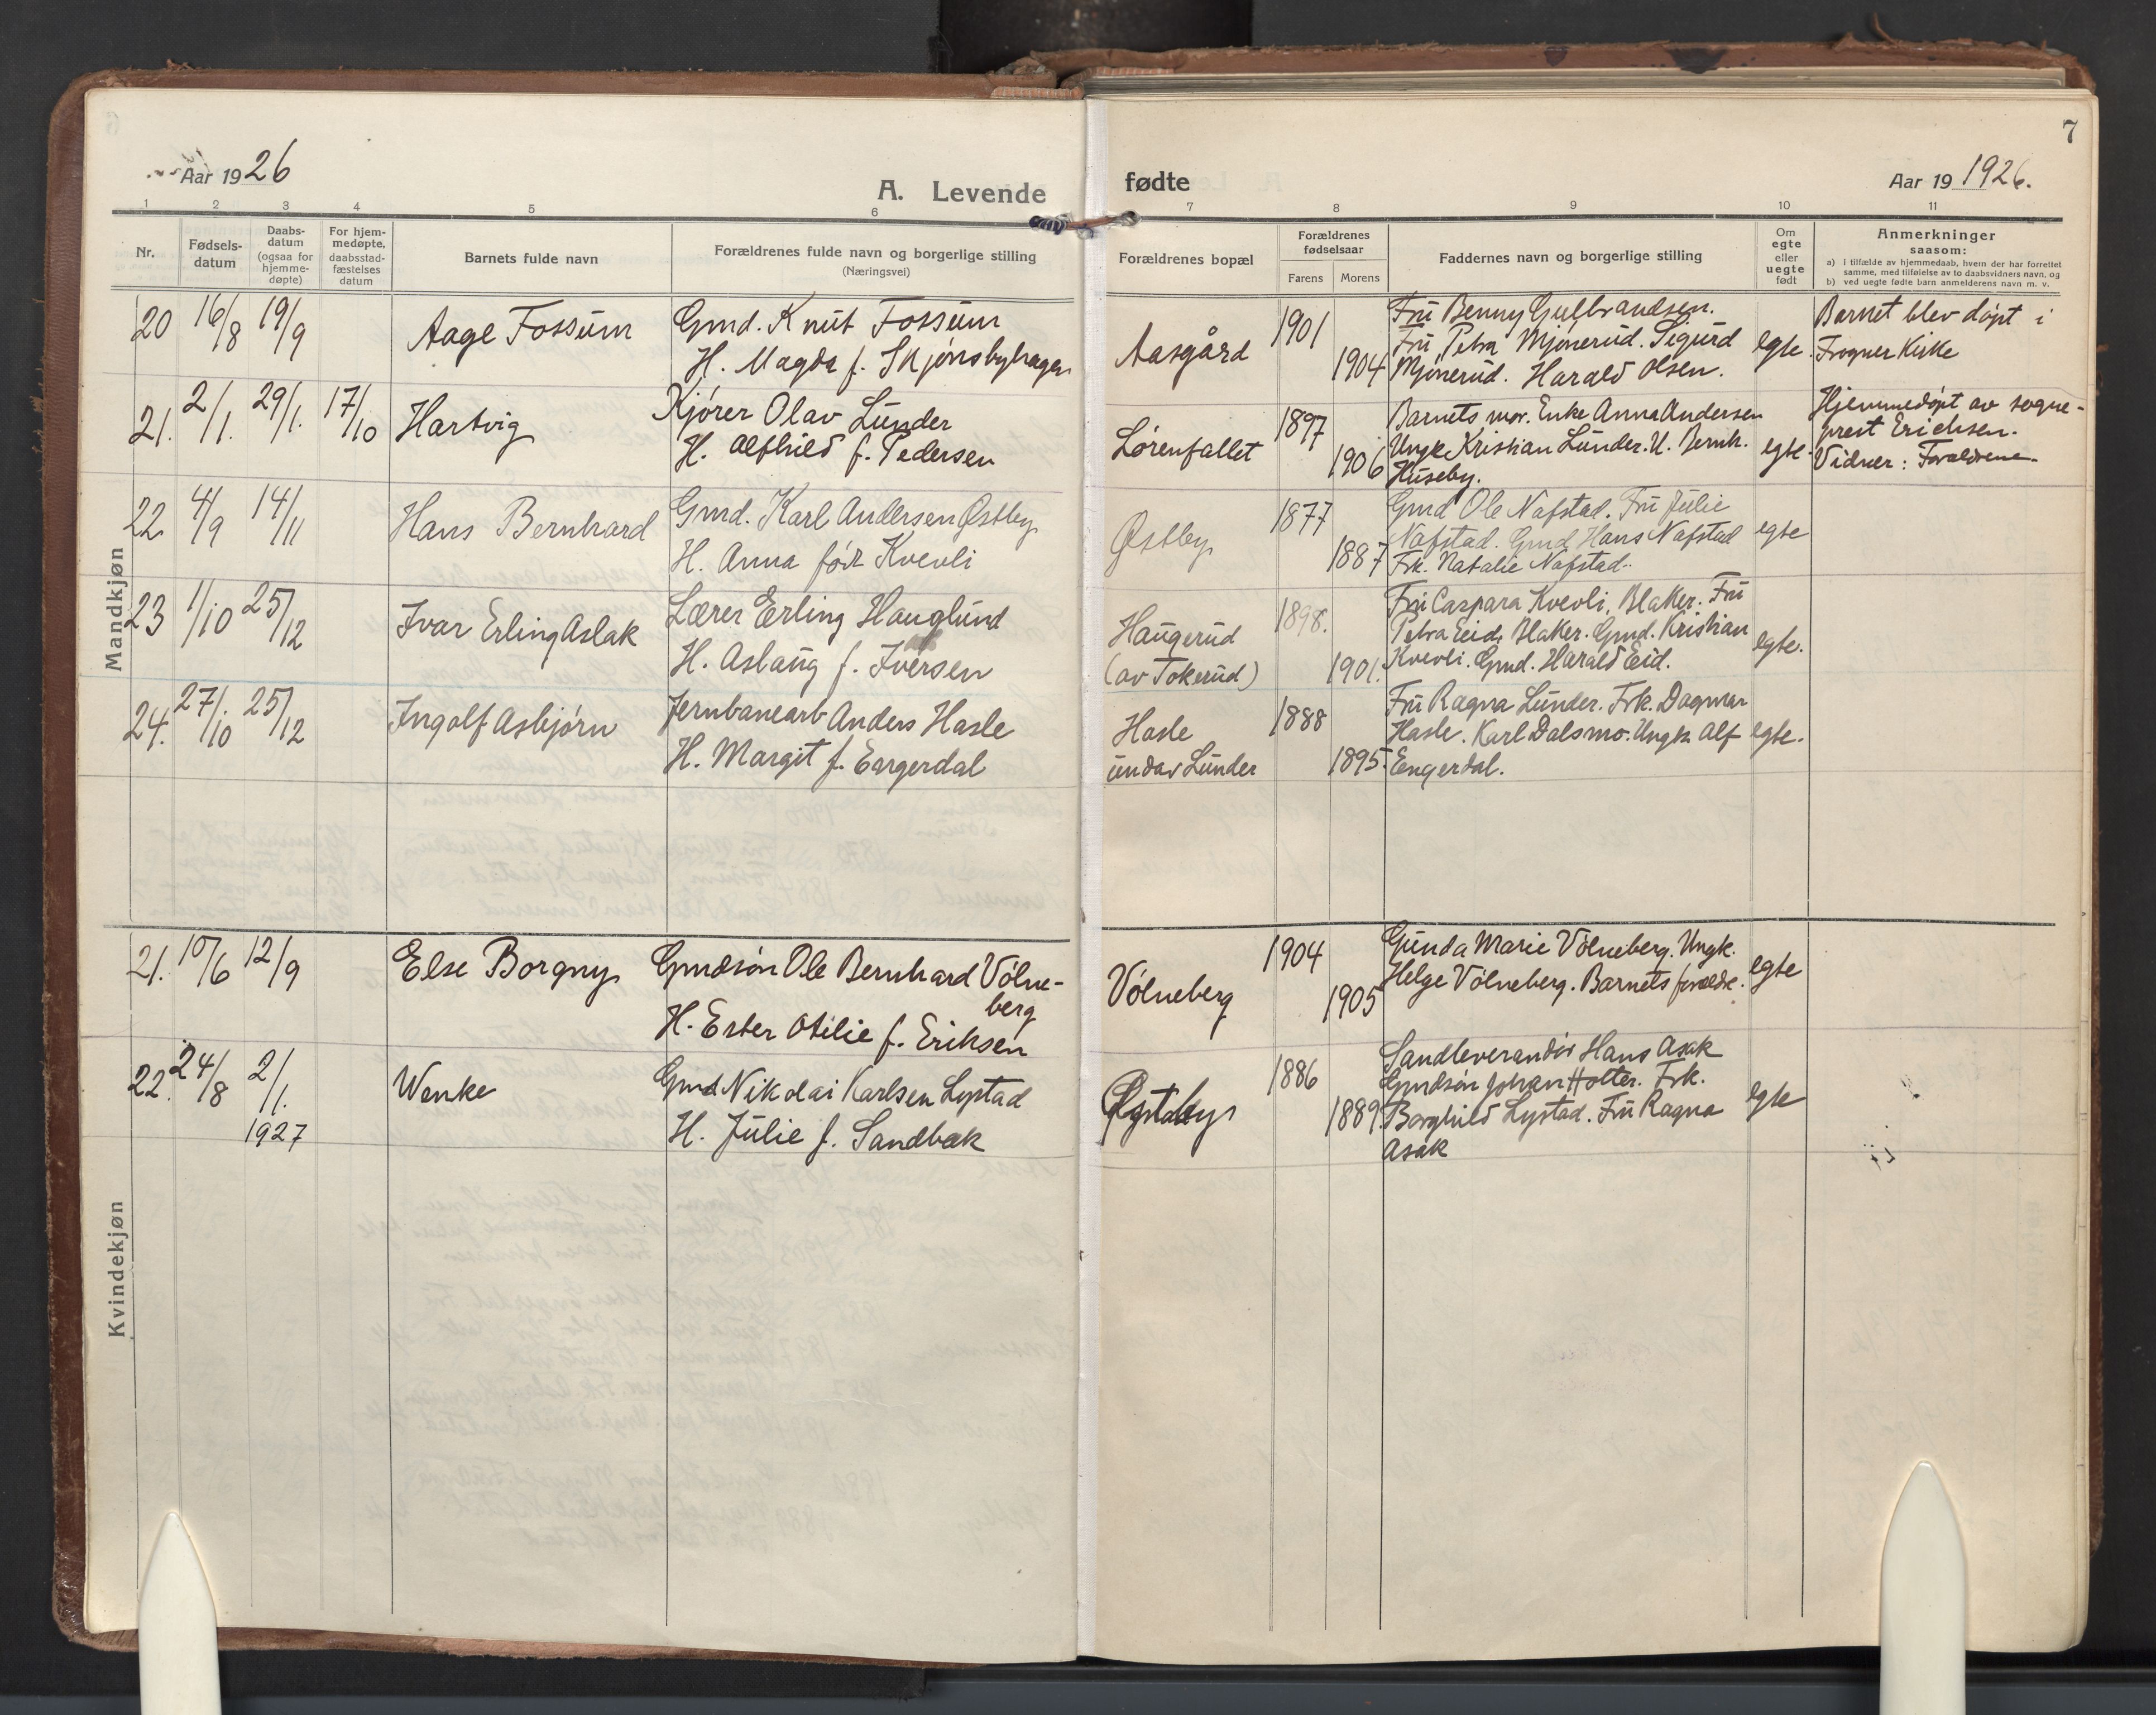 7
Aar 1926
A. Levende
fødte
Aar 19 1926.
1 2 3 4 5 6 7 8 9 10 11
Nr.
Fødsels-
datum
Daabs-
datum
(ogsaa for
hjemme-
døpte)
For hjem-
medøpte,
daabsstad-
fæstelses
datum
Barnets fulde navn
Forældrenes fulde navn og borgerlige stilling
(Næringsvei)
Forældrenes bopæl
Forældrenes
fødselsaar
Farens Morens
Faddernes navn og borgerlige stilling
Om
egte
eller
uegte
født
Anmerkninger
saasom:
a) i tilfælde av hjemmedaab, hvem der har forrettet
samme, med tilføielse av to daabsvidners navn, og
b) ved uegte fødte barn anmelderens navn m. v.
Mandkjøn
20 16/8 19/9
Aage Fossum
Gmd. Knut Fossum
H. Magda f. Skjønsbyhagen
Aasgård
1901
1904
Fru Benny Gulbrandsen.
Fru Petra Mjønerud. Sigurd
Mjønerud. Harald Olsen.
egte.
Barnet blev døpt i
Frogner Kirke
21. 2/1. 29/1. 17/10
Hartvig
Kjører Olav Lunder
H. Alfhild f. Pedersen
Lørenfallet
1897
1906
Barnets mor. Enke Anna Andersen
Ungk Kristian Lunder. U. Bernh.
Huseby.
egte.
Hjemmedøpt av sogne-
prest Erichsen.
Vidner: Forældrene.
22. 4/9 14/11
Hans Bernhard
Gmd. Karl Andersen Østby
H. Anna født Kvevli
Østby
1877
1887
Gmd Ole Nafstad. Fru Julie
Nafstad. Gmd Hans Nafstad
Frk. Natalie Nafstad.
egte
23 1/10 25/12
Ivar Erling Aslak
Lærer Erling Hauglund
H. Aslaug f. Iversen
Haugerud
(av Tokerud)
1898.
1901.
Fru Caspara Kvevli, Blaker. Fru
Petra Eid, Blaker. Gmd. Kristian
Kvevli. Gmd. Harald Eid.
egte.
24. 27/10 25/12
Ingolf Asbjørn
Jernbanearb Anders Hasle
H. Margit f. Engerdal
Hasle
undav Lunder
1888
1895.
Fru Ragna Lunder. Frk. Dagmar
Hasle. Karl Dalsmo. Ungk. Alf
Engerdal.
egte.
Kvindekjøn
21. 10/6 12/9
Else Borgny
Gmdsøn Ole Bernhard Vølne-
berg
H. Ester Otilie f. Eriksen
Vølneberg
1904
1905
Gunda Marie Vølneberg. Ungk.
Helge Vølneberg. Barnets forældre.
egte
22. 24/8 2/1.
1927
Wenke
Gmd Nikolai Karlsen Lystad
H. Julie f. Sandbæk
1886
1889
Sandleverandør Hans Asak
Gmdsøn Johan Holter. Frk.
Borghild Lystad. Fru Ragna
Asak
egte